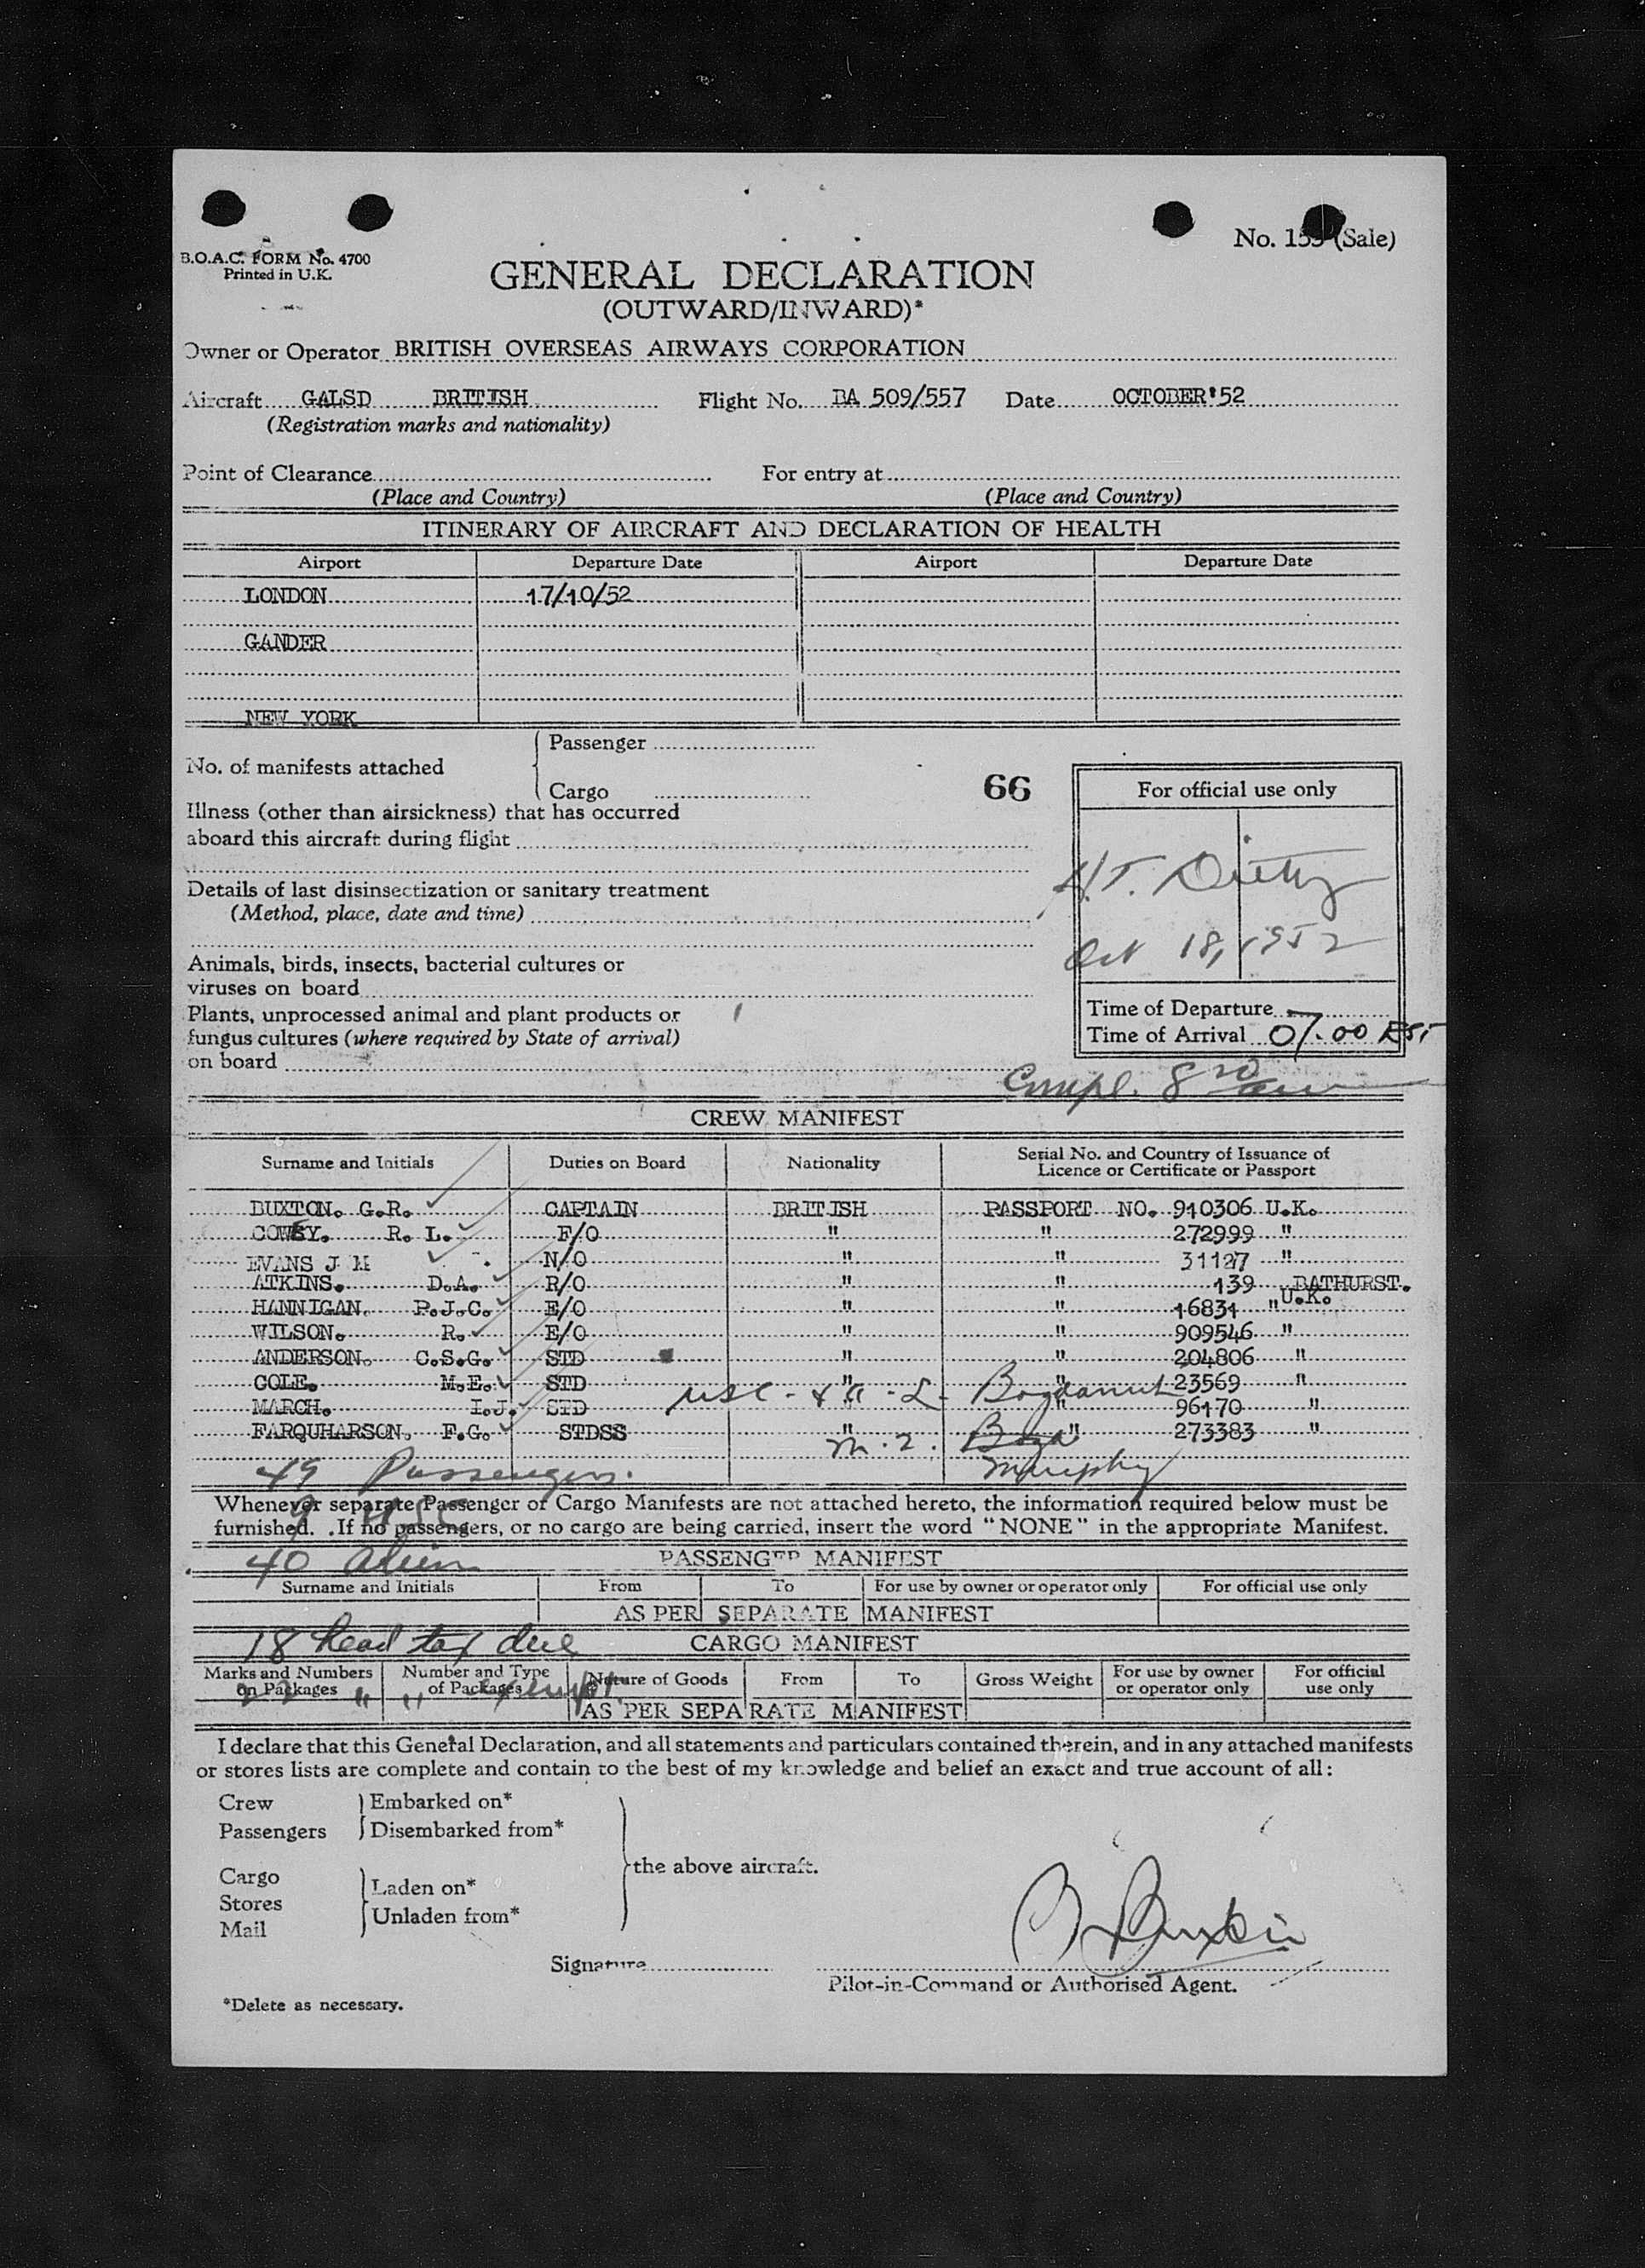 No. 155 (Sale)
B.O.A.C. FORM No. 4700
Printed in U.K.
GENERAL DECLARATION
(OUTWARD/INWARD)*
Owner or Operator BRITISH OVERSEAS AIRWAYS CORPORATION
Aircraft GALSD BRITISH Flight No. BA 509/557 Date OCTOBER'52
(Registration marks and nationality)
Point of Clearance For entry at
(Place and Country) (Place and Country)
ITINERARY OF AIRCRAFT AND DECLARATION OF HEALTH
Airport Departure Date Airport Departure Date
LONDON 17/10/52
GANDER
NEW YORK
No. of manifests attached
Passenger
Cargo
66
For official use only
Illness (other than airsickness) that has occurred
aboard this aircraft during flight
H.T. Dietz
Details of last disinsectization or sanitary treatment
(Method, place, date and time)
Oct 18, 1952
Animals, birds, insects, bacterial cultures or
viruses on board
Plants, unprocessed animal and plant products or
fungus cultures (where required by State of arrival)
on board
Time of Departure
Time of Arrival 07.00 EST
Compl. 8 20 am
CREW MANIFEST
Surname and Initials Duties on Board Nationality Serial No. and Country of Issuance of
Licence or Certificate or Passport
BUXTON. G.R. CAPTAIN BRITISH PASSPORT NO. 910306 U.K.
COWEY. R. L. F/O " " 272999 "
EVANS J M N/O " " 31127 "
ATKINS. D.A. R/O " " 139 BATHURST.
HANNIGAN. P.J.C. E/O " " 16831 " U.K.
WILSON. R. E/O " " 909546 "
ANDERSON. C.S.G. STD " " 204806 "
COLE. M.E. STD " " 23569 "
MARCH. I.J. STD " 96170 "
FARQUHARSON. F.G. STDSS " " 273383 "
49 Passengers.
Murphy
Whenever separate Passenger or Cargo Manifests are not attached hereto, the information required below must be
furnished. If no passengers, or no cargo are being carried, insert the word "NONE" in the appropriate Manifest.
9 USC
40 alien
PASSENGER MANIFEST
Surname and Initials From To For use by owner or operator only For official use only
AS PER SEPARATE MANIFEST
18 head tax due
CARGO MANIFEST
Marks and Numbers on Packages Number and Type of Packages Nature of Goods From To Gross Weight For use by owner or operator only For official use only
22 " " exempt
AS PER SEPARATE MANIFEST
I declare that this General Declaration, and all statements and particulars contained therein, and in any attached manifests
or stores lists are complete and contain to the best of my knowledge and belief an exact and true account of all:
Crew
Passengers
Embarked on*
Disembarked from*
Cargo
Stores
Mail
Laden on*
Unladen from*
the above aircraft.
G Buxton
Signature
Pilot-in-Command or Authorised Agent.
*Delete as necessary.